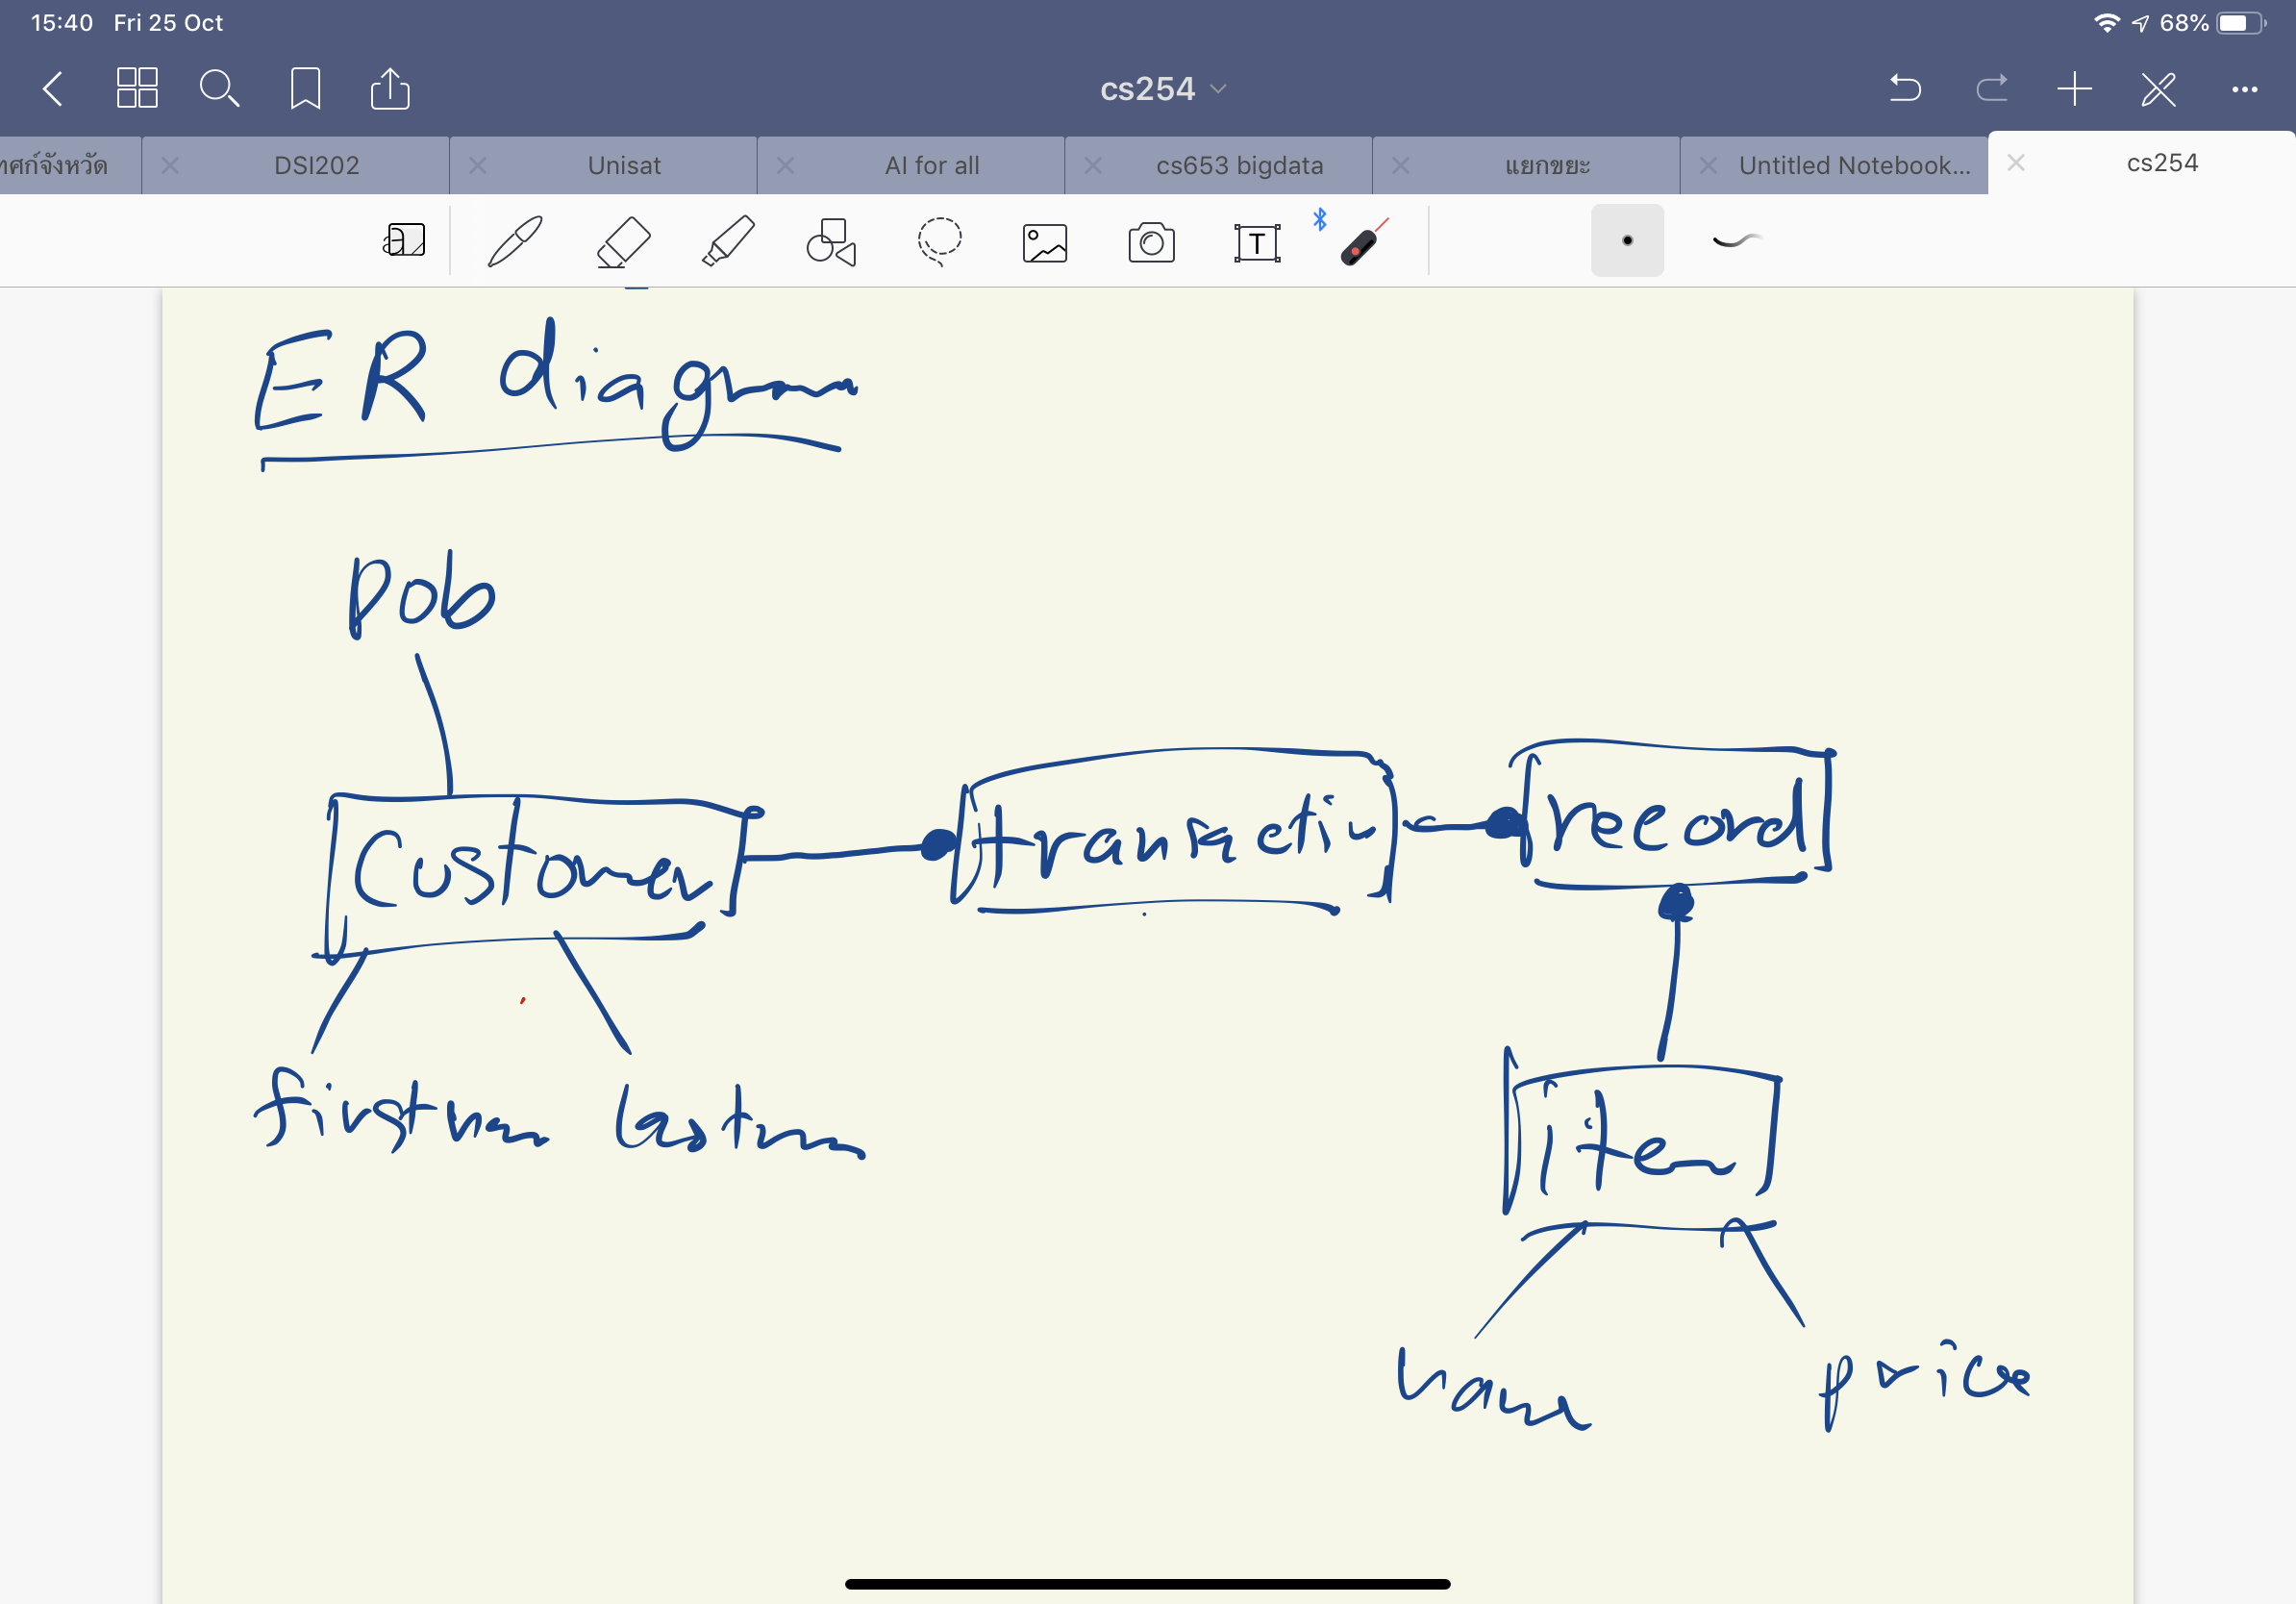 15:40 Fri 25 Oct 68%
cs254
ทศก์จังหวัด DSI202 Unisat AI for all cs653 bigdata แยกขยะ Untitled Notebook... cs254
T
ER diagram
DOB
Customer transaction record
firstname lastname
item
name price